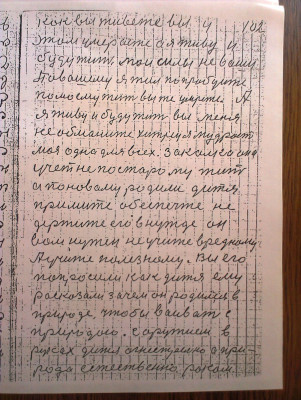 кон вы живете вы и 102
этом умераете а я живу и
буду жит мои силы не ваши
По вашему я жил попробуйте
по моему жит вы не умрете. А
я живу и буду жит вы меня
не обманите хитрили мудраст
моя одна для всех. закалка она
учет не постарому жит
а поновому родили дитя
примите обеспечте не
держите его в нужде он
вам нужен не учите вредному
А учите полезному. Вы его
попросили как дитя ему
расказали зачем он родился в
природе, чтобы ваиват с
природою. с аружием в
руках дитя огнестрелно а при-
рода естественно раком.